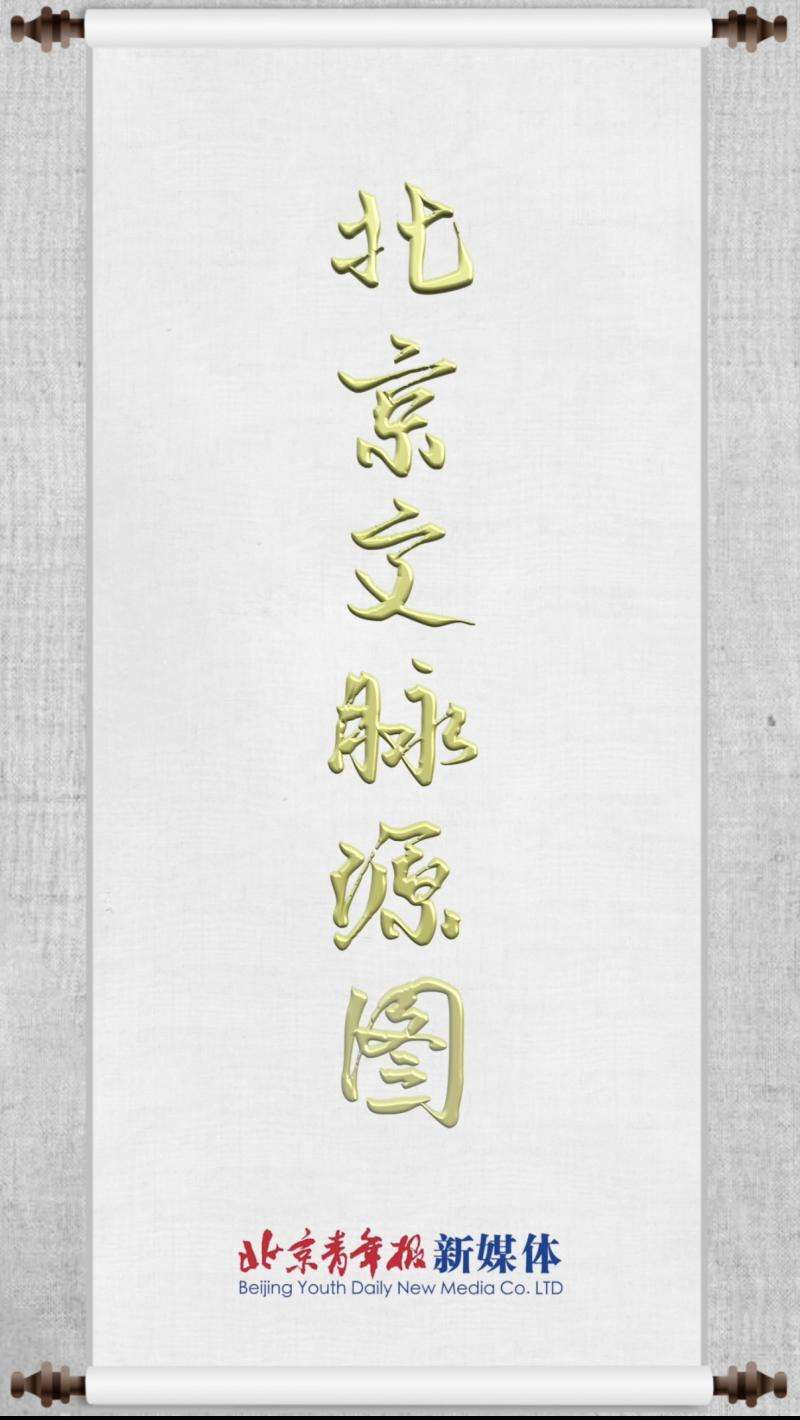 北京文脉源图
北京青年报新媒体
Beijing Youth Daily New Media Co. LTD